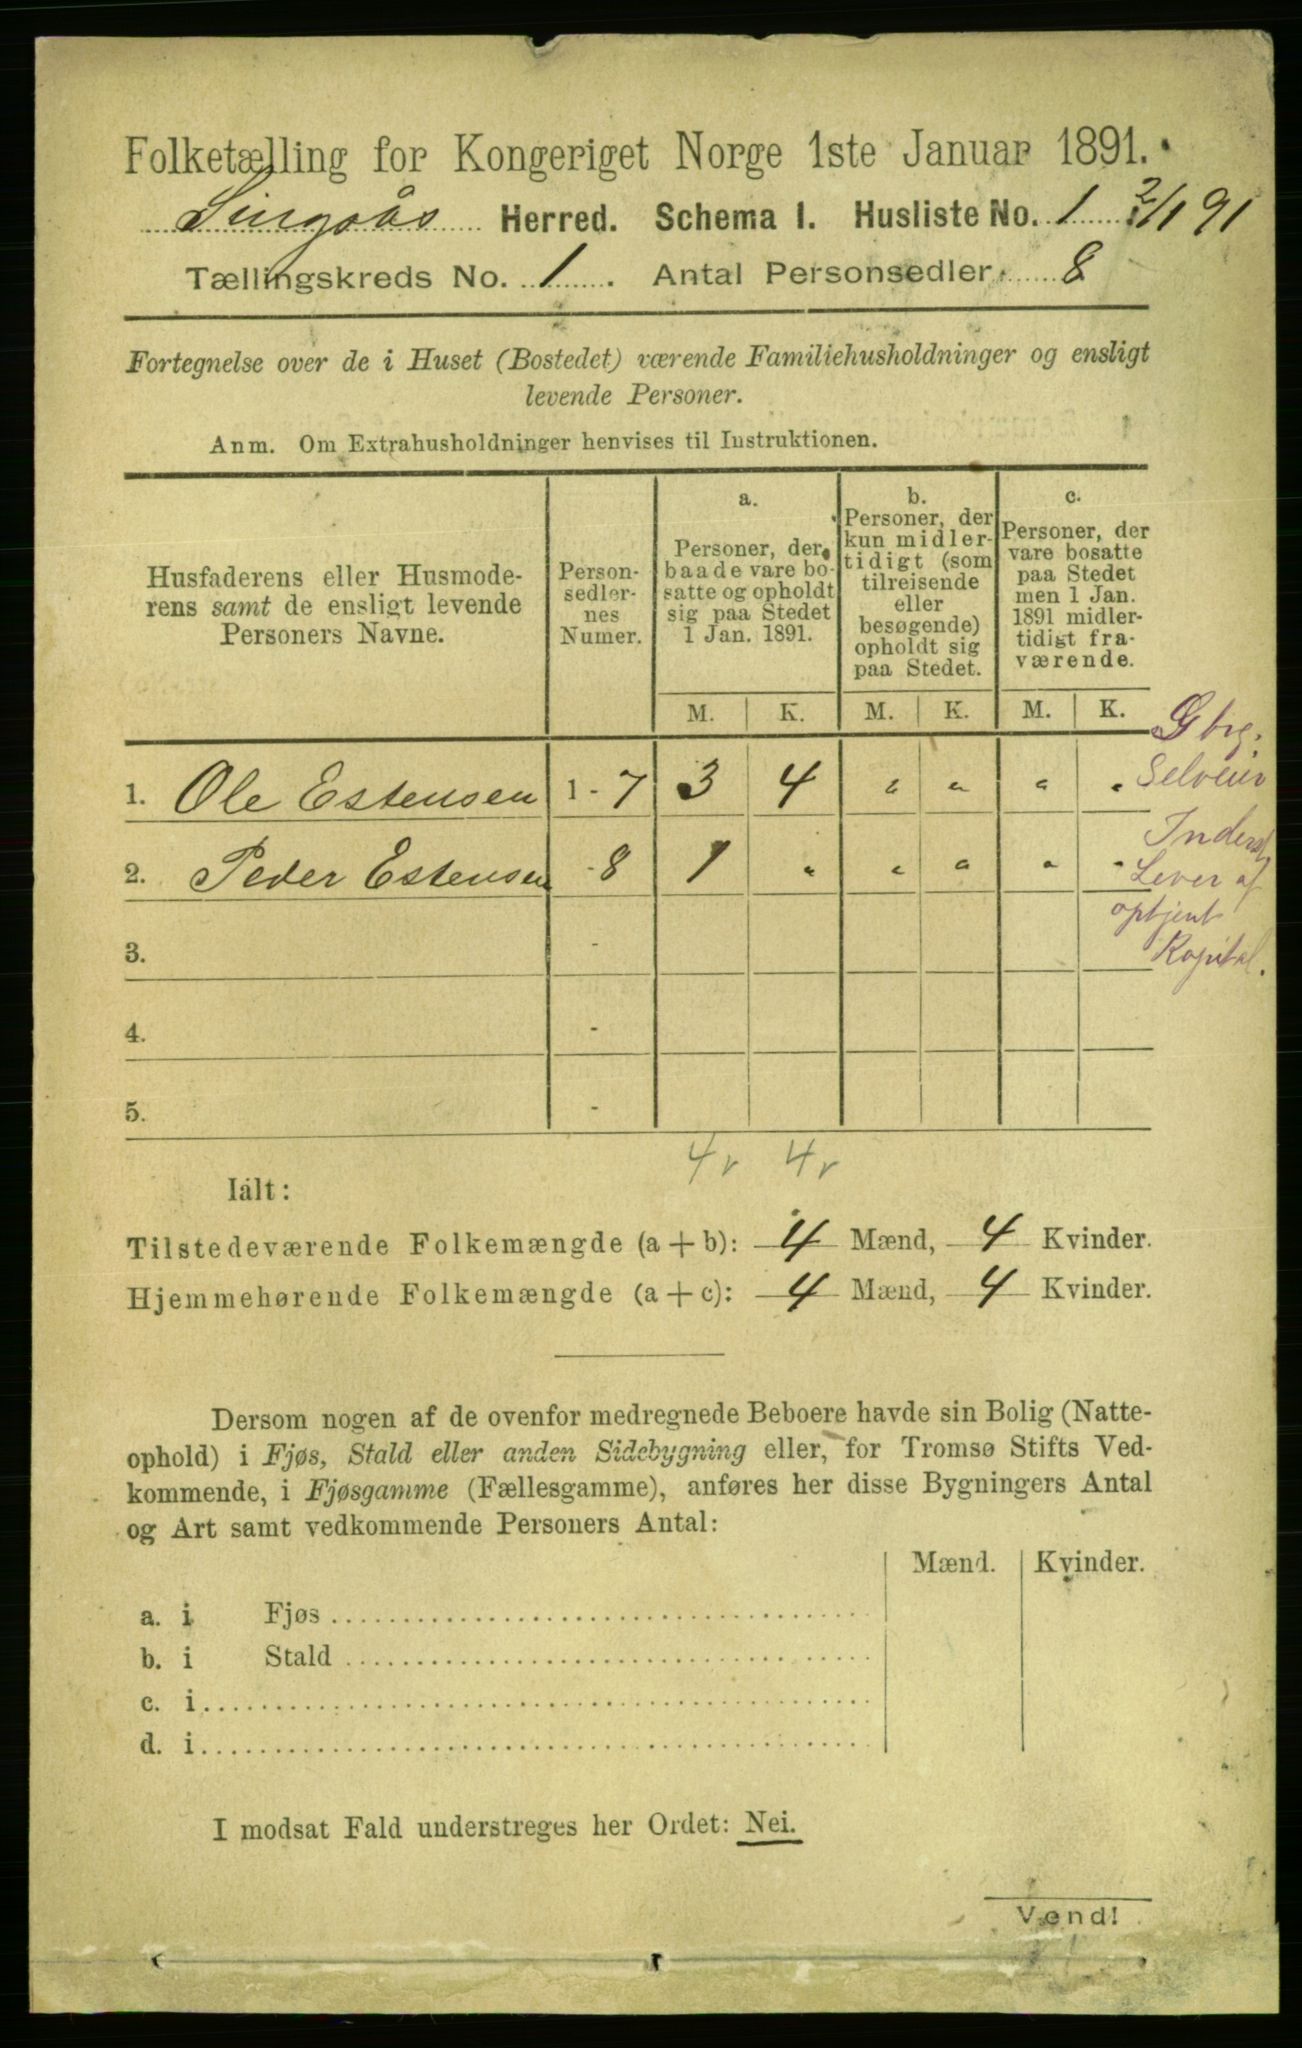 Folketælling for Kongeriget Norge 1ste Januar 1891.
Singsås Herred. Schema 1. Husliste No. 1 2/1 91
Tællingskreds No. 1. Antal Personsedler 8
Fortegnelse over de i Huset (Bostedet) værende Familiehusholdninger og ensligt
levende Personer.
Anm. Om Extrahusholdninger henvises til Instruktionen.
Husfaderens eller Husmode-
rens samt de ensligt levende
Personers Navne.
Person-
sedler-
nes
Numer.
a.
Personer, der
baade vare bo-
satte og opholdt
sig paa Stedet
1 Jan. 1891.
b.
Personer, der
kun midler-
tidigt (som
tilreisende
eller
besøgende)
opholdt sig
paa Stedet.
c.
Personer, der
vare bosatte
paa Stedet
men 1 Jan.
1891 midler-
tidigt fra-
værende.
M. K. M. K. M. K.
1. Ole Estensen 1 - 7 3 4 " " " "
Gbrg.
Selveier
2. Peder Estensen - 8 1 " " " " "
Inderst
Lever af
optjent
Kapital.
3. -
4. -
5. -
4 r 4 r
Ialt:
Tilstedeværende Folkemængde (a + b): 4 Mænd, 4 Kvinder.
Hjemmehørende Folkemængde (a + c): 4 Mænd, 4 Kvinder.
Dersom nogen af de ovenfor medregnede Beboere havde sin Bolig (Natte-
ophold) i Fjøs, Stald eller anden Sidebygning eller, for Tromsø Stifts Ved-
kommende, i Fjøsgamme (Fællesgamme), anføres her disse Bygningers Antal
og Art samt vedkommende Personers Antal:
Mænd. Kvinder.
a. i Fjøs
b. i Stald
c. i
d. i
I modsat Fald understreges her Ordet: Nei.
Vend!